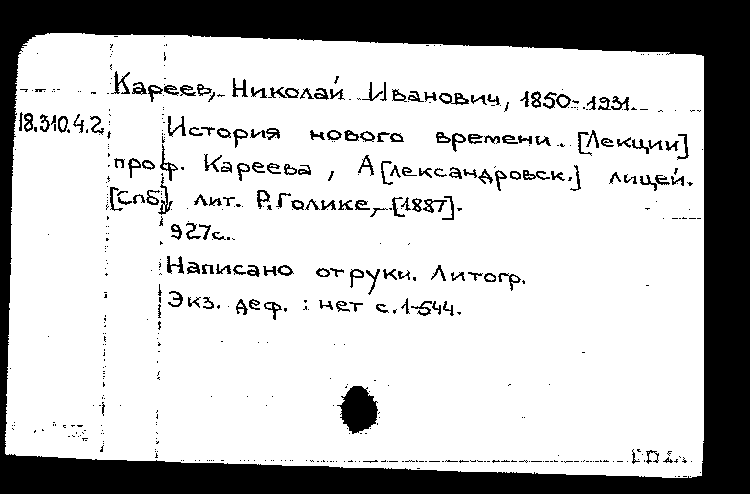 Кареев, Николай Иванович, 1850-1931.
18.310.4.2. История нового времени. [Лекции]
проф. Кареева, А[лександровск.] лицей.
[Спб.], лит. Р. Голике, [1887].
927с.
Написано от руки. Литогр.
Экз. деф.: нет с.1-544.